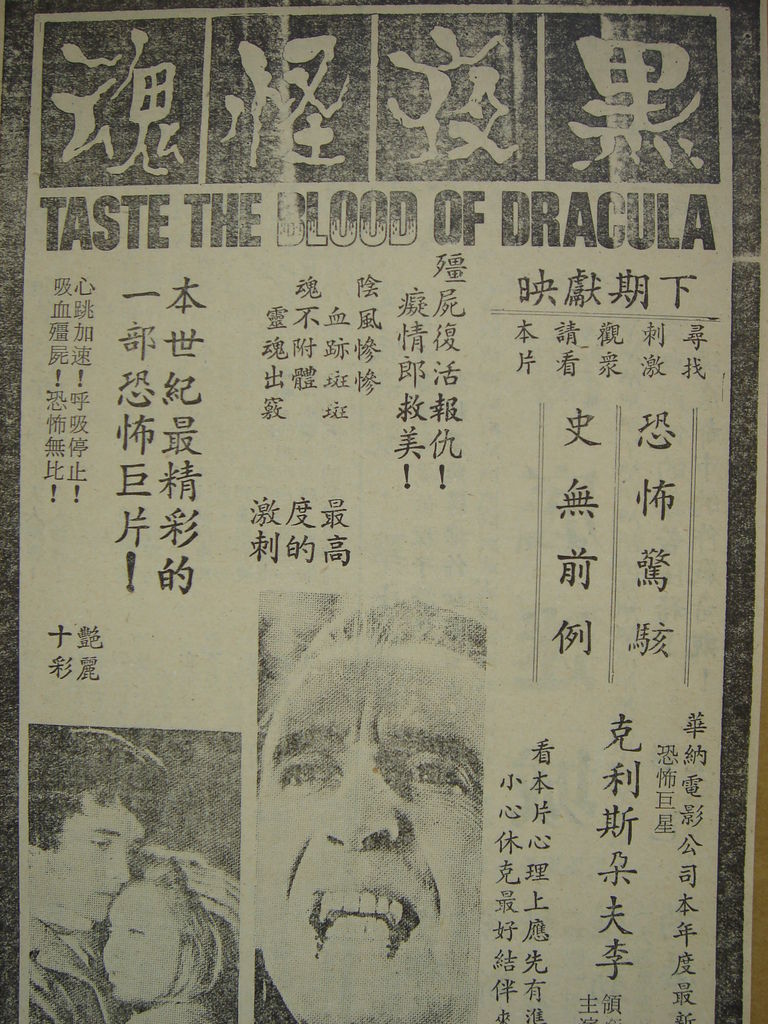 黑夜怪魂
TASTE THE BLOOD OF DRACULA
下期獻映
尋找
刺激
觀衆
請看
本片
恐怖驚駭
史無前例
殭屍復活報仇！
癡情郎救美！
陰風慘慘
血跡斑斑
魂不附體
靈魂出竅
最高
度的
激刺
本世紀最精彩的
一部恐怖巨片！
心跳加速！呼吸停止！
吸血殭屍！恐怖無比！
艷麗
十彩
華納電影公司本年度最新
恐怖巨星
克利斯朶夫李
領
主演
看本片心理上應先有準
小心休克最好結伴來